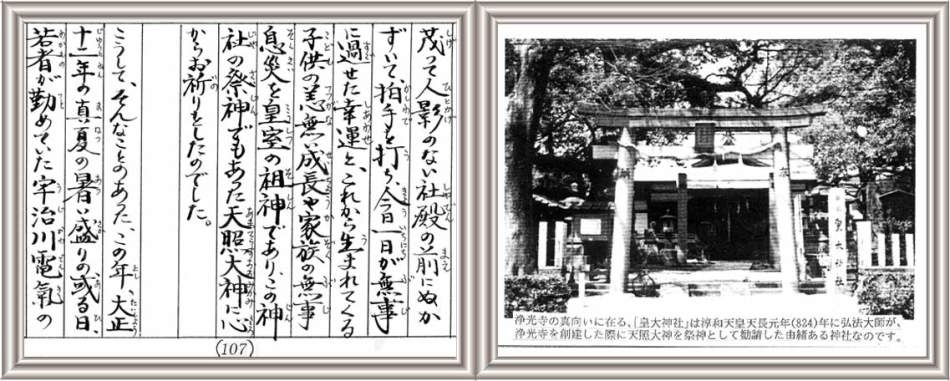 茂って人影のない社殿の前にぬか
ずいて、拍手を打ち、今日一日が無事
に過せた幸運と、これから生まれてくる
子供の恙無い成長や家族の無事
息災を皇室の祖神であり、この神
社の祭神でもあった天照大神に心
からお祈りをしたのでした。
こうして、そんなことのあった、この年、大正
十二年の真夏の暑い盛りの或る日、
若者が勤めていた宇治川電氣の
(107)
皇大神社
浄光寺の真向いに在る、「皇大神社」は淳和天皇天長元年(824)年に弘法大師が、
浄光寺を創建した際に天照大神を祭神として勧請した由緒ある神社なのです。